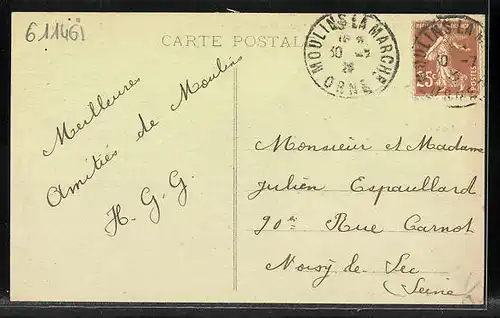 611461
CARTE POSTALE
MOULINS-LA-MARCHE
30 -7
ORNE
25c
POSTES
Meilleures
Amitiés de Moulins
H. G. G.
Monsieur et Madame
Julien Espaullard
90 Rue Carnot
Noisy-le-Sec
(Seine)